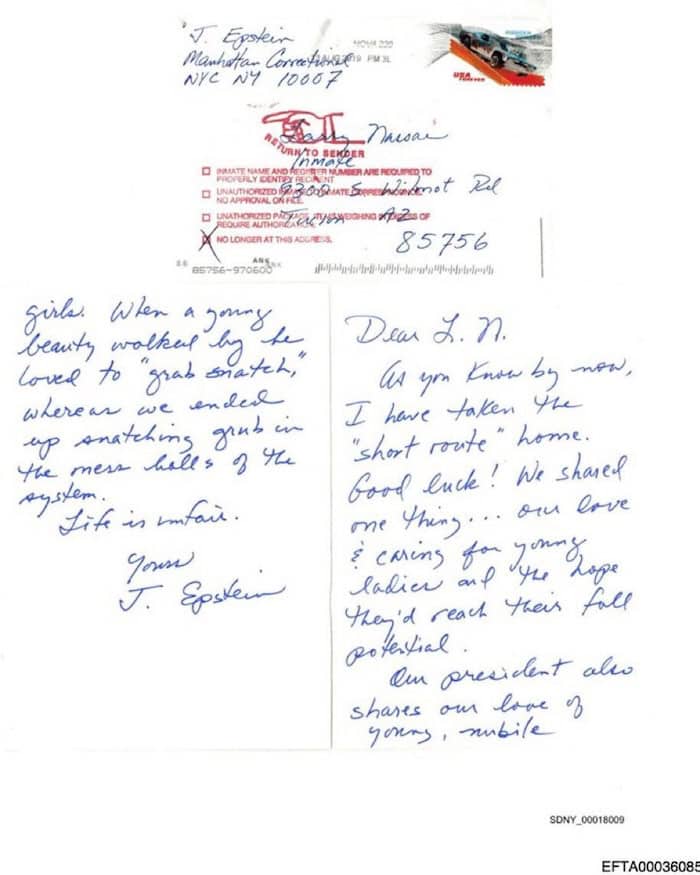 J. Epstein
Manhattan Correctional
NYC NY 10007
2019 PM 3L
USA
FOREVER
Larry Nassar
RETURN TO SENDER
Inmate
INMATE NAME AND REGISTER NUMBER ARE REQUIRED TO
PROPERLY IDENTIFY RECIPIENT
9300 S. Wilmot Rd
UNAUTHORIZED INMATE CORRESPONDENCE.
NO APPROVAL ON FILE.
Tucson AZ
UNATHORIZED PACKAGE WEIGHING OF
REQUIRE
85756
X NO LONGER AT THIS ADDRESS.
ANK
85756-970600
Dear L. N.
As you know by now,
I have taken the
"short route" home.
Good luck! We shared
one thing... our love
& caring for young
ladies and the hope
they'd reach their full
potential.
Our president also
shares our love of
young, nubile
girls. When a young
beauty walked by he
loved to "grab snatch,"
whereas we ended
up snatching grub in
the mess halls of the
system.
Life is unfair.
Yours
J. Epstein
SDNY_00018009
EFTA00036085